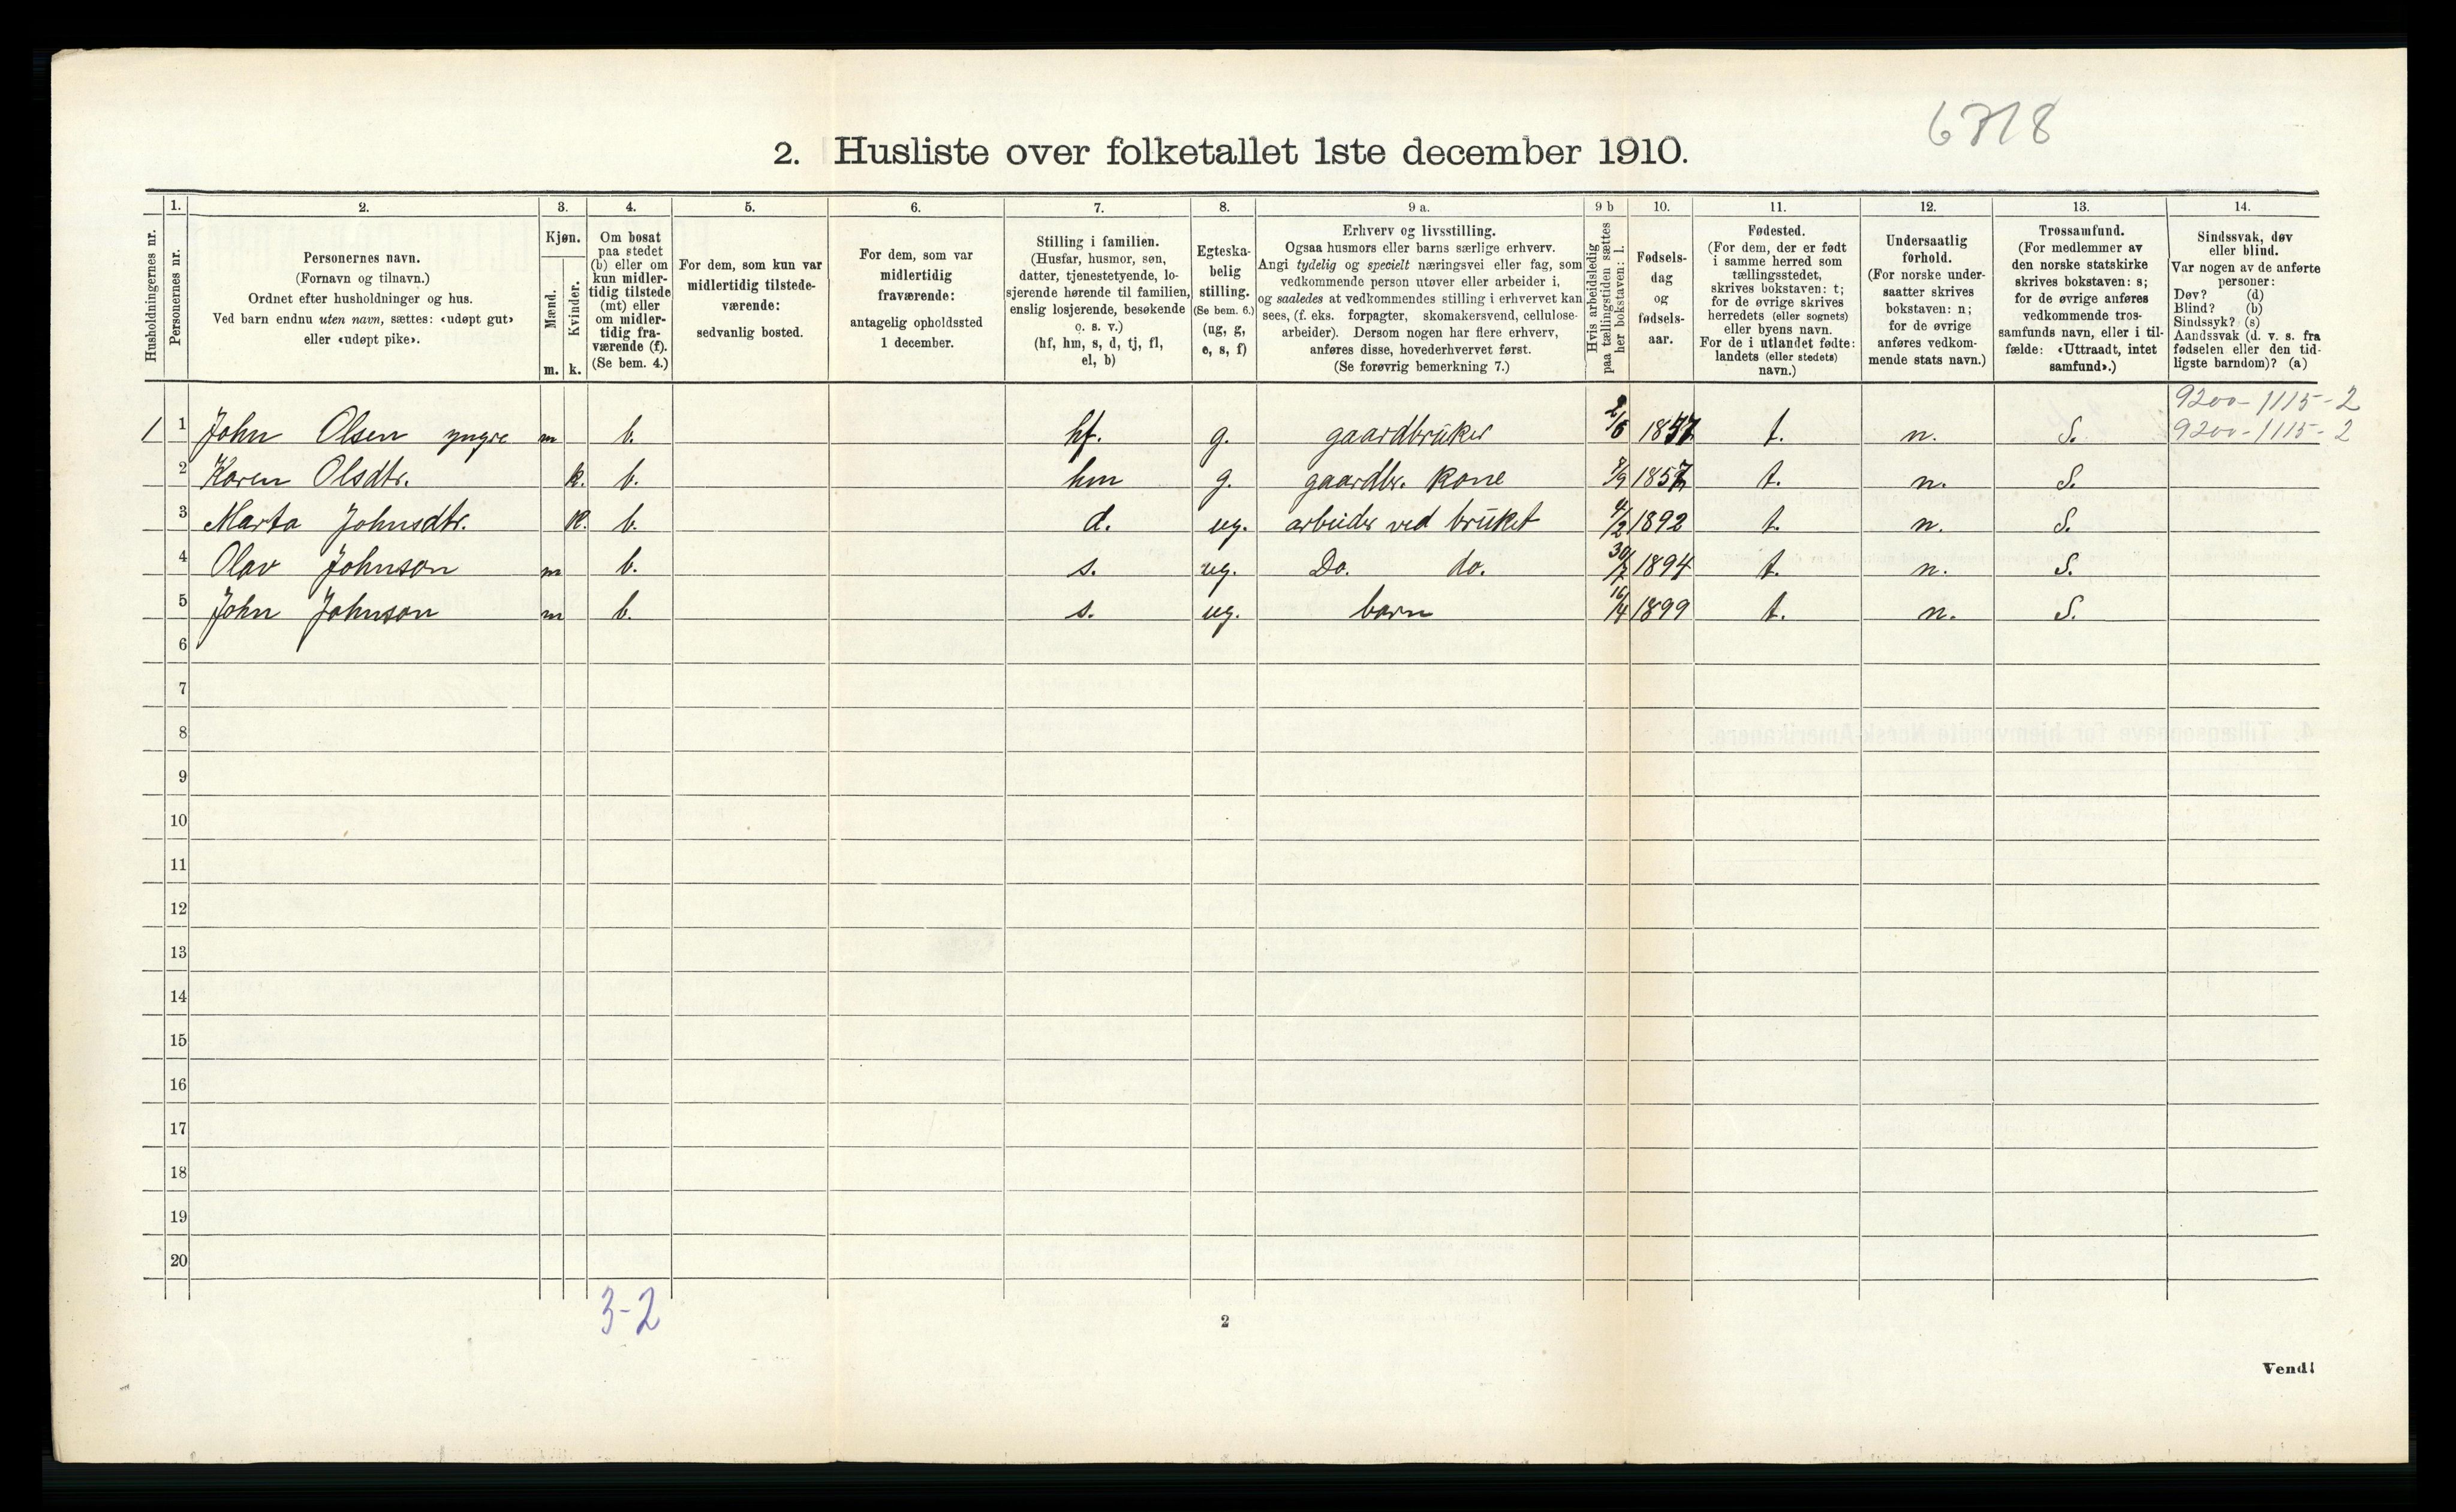 6718
2. Husliste over folketallet 1ste december 1910.
Husholdningernes nr.
1.
Personernes nr.
2.
Personernes navn.
(Fornavn og tilnavn.)
Ordnet efter husholdninger og hus.
Ved barn endnu uten navn, sættes: «udøpt gut»
eller «udøpt pike».
3.
Kjøn.
Mænd.
Kvinder.
m. k.
4.
Om bosat
paa stedet
(b) eller om
kun midler-
tidig tilstede
(mt) eller
om midler-
tidig fra-
værende (f).
(Se bem. 4.)
5.
For dem, som kun var
midlertidig tilstede-
værende:
sedvanlig bosted.
6.
For dem, som var
midlertidig
fraværende:
antagelig opholdssted
1 december.
7.
Stilling i familien.
(Husfar, husmor, søn,
datter, tjenestetyende, lo-
sjerende hørende til familien,
enslig losjerende, besøkende
o. s. v.)
(hf, hm, s, d, tj, fl,
el, b)
8.
Egteska-
belig
stilling.
(Se bem. 6.)
(ug, g,
e, s, f)
9 a.
Erhverv og livsstilling.
Ogsaa husmors eller barns særlige erhverv.
Angi tydelig og specielt næringsvei eller fag, som
vedkommende person utøver eller arbeider i,
og saaledes at vedkommendes stilling i erhvervet kan
sees, (f. eks. forpagter, skomakersvend, cellulose-
arbeider). Dersom nogen har flere erhverv,
anføres disse, hovederhvervet først.
(Se forøvrig bemerkning 7.)
9 b
Hvis arbeidsledig
paa tællingstiden sættes
her bokstaven: l.
10.
Fødsels-
dag
og
fødsels-
aar.
11.
Fødested.
(For dem, der er født
i samme herred som
tællingsstedet,
skrives bokstaven: t;
for de øvrige skrives
herredets (eller sognets)
eller byens navn.
For de i utlandet fødte:
landets (eller stedets)
navn.)
12.
Undersaatlig
forhold.
(For norske under-
saatter skrives
bokstaven: n;
for de øvrige
anføres vedkom-
mende stats navn.)
13.
Trossamfund.
(For medlemmer av
den norske statskirke
skrives bokstaven: s;
for de øvrige anføres
vedkommende tros-
samfunds navn, eller i til-
fælde: «Uttraadt, intet
samfund».)
14.
Sindssvak, døv
eller blind.
Var nogen av de anførte
personer:
Døv? (d)
Blind? (b)
Sindssyk? (s)
Aandssvak (d. v. s. fra
fødselen eller den tid-
ligste barndom)? (a)
9200-1115-2
1 1 John Olsen yngre m b. hf. g. gaardbruker 2/6 1857 t. n. S. 9200-1115-2
2 Karen Olsdtr. k. b. hm g. gaardbr. kone 7/9 1857 t. n. S.
3 Marta Johnsdtr. k. b. d. ug. arbeider ved bruket 4/2 1892 t. n. S.
4 Olav Johnson m b. s. ug. Do. do. 30/7 1894 t. n. S.
5 John Johnson m b. s. ug. barn 16/4 1899 t. n. S.
6
7
8
9
10
11
12
13
14
15
16
17
18
19
20
3-2
2
Vend!